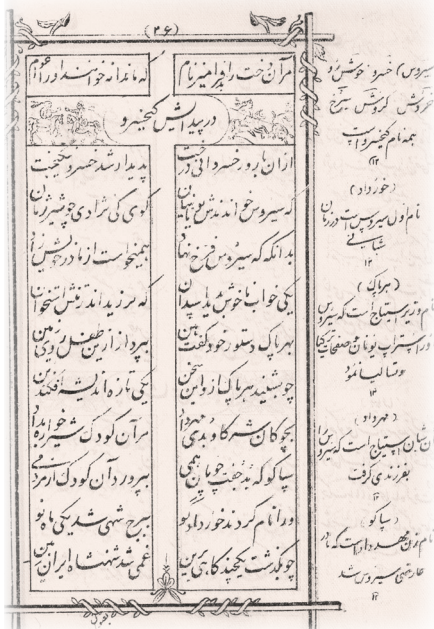 (۲۶)
مرآن دخت را بد امیز نام
که ماندانه خواهند او را
در پیدایش کیخسرو
ازان بارور خسروانی درخت
پدیدار شد خسرو نیکبخت
که سیروس خواندندش یونانیان
گوی کی نژادی چو شیر ژیان
بدانگه که سیروس فرخ نهاد
همیخواست از مادر خویش زاد
یکی خواب ناخوش بدید
که برزیده اند
بهرپاک دستور خود گفت هین
ببر از این طفل روی زمین
چو بشنید هرپاک ازو این سخن
یکی تازه اندیشه افکند بن
بچوپان شه گاو بدی مهرداد
مر آن کودک شیره خواره بداد
سپاکو که بد جفت چوپان همی
بپرورد آن کودک از مردمی
ورا نام کردند خورداد نو
بچرخ شهی شد یکی ماه نو
چو بگذشت یکچند گاهی برین
همی شد شهنشاه ایران زمین
(سیروس) خسرو خوش رو
خردش کروش سیرخ
همه نام کیخسرو است
۱۲
(خورداد)
نام اول سیروس است در زمان
شبانی
۱۲
(هرپاک)
نام وزیر استیاج است که سیروس
یونان و صفحات
۱۲
(مهرداد)
شبان استیاج است که سیروس را
بفرزندی گرفت
۱۲
(سپاکو)
نام زن مهرداد است که مادر
عارضی سیروس شد
۱۲